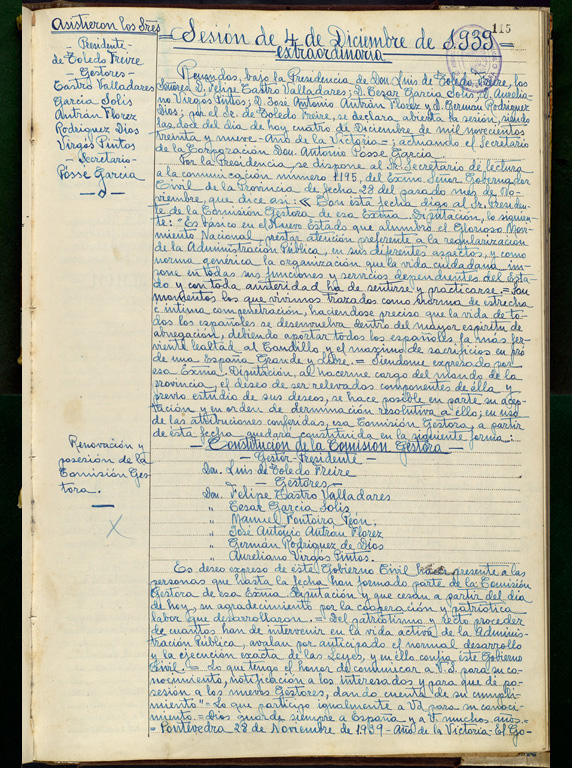 115
Asistieron los Sres
- Presidente -
de Toledo Freire
- Gestores -
Castro Valladares
García Solis
Antrán Florez
Rodriguez Dios
Virgos Pintos
- Secretario -
Posse García
Sesión de 4 de Diciembre de 1.939 -
extraordinaria
Reunidos, bajo la Presidencia de Don Luis de Toledo Freire, los
Señores D. Felipe Castro Valladares; D. Cesar García Solis; D. Aurelia-
no Virgos Pintos; D. José Antonio Antrán Florez y D. Germán Rodriguez
Dios; por el Sr. de Toledo Freire, se declara abierta la sesión, siendo
las doce del día de hoy cuatro de Diciembre de mil novecientos
treinta y nueve - Año de la Victoria =; actuando el Secretario
de la Corporación Don Antonio Posse García
Por la Presidencia, se dispone al Sr. Secretario de lectura
a la comunicación número 1195, del Exmo Señor Gobernador
Civil de la Provincia de fecha 28 del pasado mes de No-
viembre, que dice así: « Con esta fecha digo al Sr. Presiden-
te de la Comisión Gestora de esa Exma Diputación, lo siguien-
te: "Es básico en el Nuevo Estado que alumbró el Glorioso Movi-
miento Nacional, prestar atención preferente a la regularización
de la Administración Pública, en sus diferentes aspectos, y como
norma genérica la organización que la vida ciudadana im-
pone en todas sus funciones y servicios dependientes del Esta-
do y con toda austeridad ha de sentirse y practicarse. = Son
momentos los que vivimos trazados como norma de estrecha
e íntima compenetración, haciendose preciso que la vida de to-
dos los españoles se desenvuelva dentro del mayor espíritu de
abnegación, debiendo aportar todos los españoles la más fer-
viente lealtad al Caudillo y el maximo de sacrificios en pró
de una España Grande y Libre. = Siendome expresado por
esa Exma. Diputación, al hacerme cargo del mando de la
provincia, el deseo de ser relevados componentes de élla y
previo estudio de sus deseos, se hace posible en parte su acep-
tación y en orden de resolutiva a éllo; en uso
de las atribuciones conferidas, esa Comisión Gestora, a partir
de esta fecha quedará constituida en la siguiente forma:
Renovación y
posesión de la
Comisión Ges-
tora.
- Constitución de la Comisión Gestora -
- Gestor-Presidente -
Don Luis de Toledo Freire
- Gestores -
Don Felipe Castro Valladares
" Cesar García Solis
" Manuel Fontoira Peón.
" José Antonio Antrán Florez
" Germán Rodriguez de Dios
" Aureliano Virgos Pintos.
Es deseo expreso de este Gobierno Civil hacer presente a las
personas que hasta la fecha han formado parte de la Comisión
Gestora de esa Exma Diputación y que cesan a partir del día
de hoy, su agradecimiento por la cooperación y patriótica
labor que desarrollaron. = Del patriotismo y recto proceder
de cuantos han de intervenir en la vida activa de la Adminis-
tración Pública, avalan por anticipado el normal desarrollo
y la ejecución exacta de las Leyes, y en ello confía este Gobierno
Civil. = Lo que tengo el honor de comunicar a V.S. para su co-
nocimiento, notificación a los interesados y para que de po-
sesión a los nuevos Gestores, dando cuenta de su cumpli-
miento" = Lo que participo igualmente a Vd para su conoci-
miento. = Dios guarde siempre a España y a V. muchos años. =
= Pontevedra 28 de Noviembre de 1939 - Año de la Victoria - El Go-